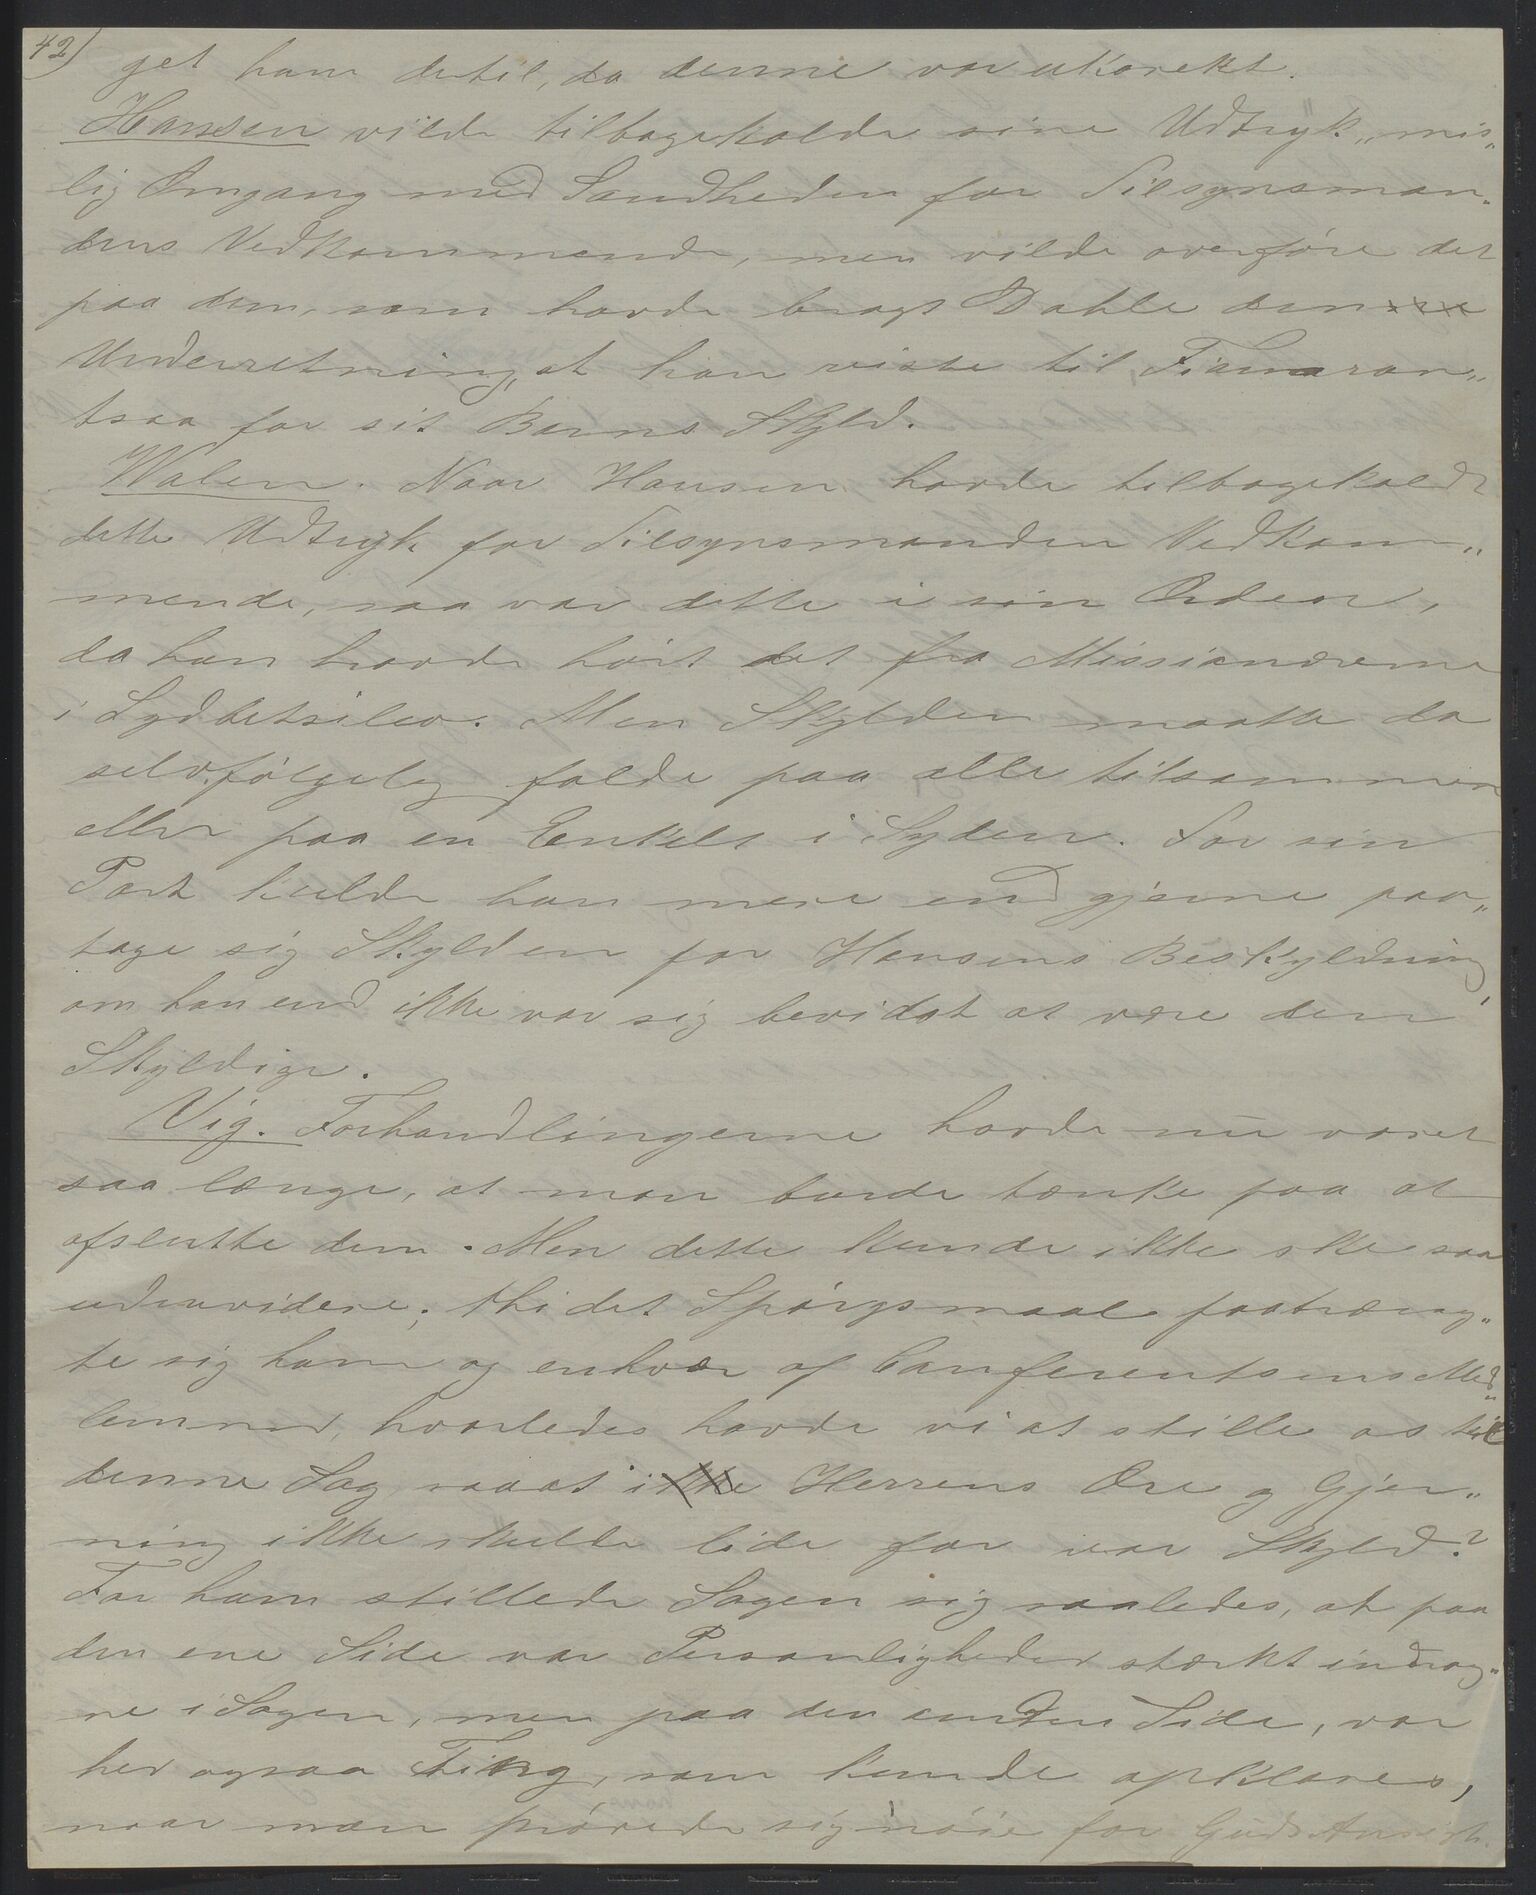 42)
get ham dertil, da denne var ukorekt.
Hansen vilde tilbagekalde sine Udtryk „mis„
lig Omgang med Sandheden for Tilsynsman„
dens Vedkommende, men vilde overføre det
paa dem, som havde bragt Dahle den
Underretning, at han reiste til Fianaran„
tsoa for sit Barns Skyld.
Walen. Naar Hansen havde tilbagekaldt
dette Udtryk for Tilsynsmanden Vedkom„
mende, saa var dette i sin Orden,
da han havde hørt det fra Missionærerne
i Sydbetsileo. Men Skylden maatte da
selvfølgelig falde paa alle tilsammen
eller paa en Enkelt i Syden. For sin
Part vilde han mere end gjerne paa„
tage sig Skylden for Hansens Beskyldning,
om han end ikke var sig bevidst at være den
Skyldige.
Vig. Forhandlingerne havde nu varet
saa længe, at man burde tænke paa at
afslutte dem. Men dette kunde ikke ske saa
udenvidere; thi det Spørgsmaal paatræng„
te sig ham og enhver af Conferentsens Med„
lemmer, hvorledes havde vi at stille os til
denne Sag saaat ikke Herrens Ære og Gjer„
ning ikke skulde lide for vor Skyld?
For ham stillede Sagen sig saaledes, at paa
den ene Side var Personligheder stærkt indrag„
ne i Sagen, men paa den anden Side, var
her ogsaa Ting, som kunde opklares,
naar man prøvede sig nøie for Guds Ansigt.